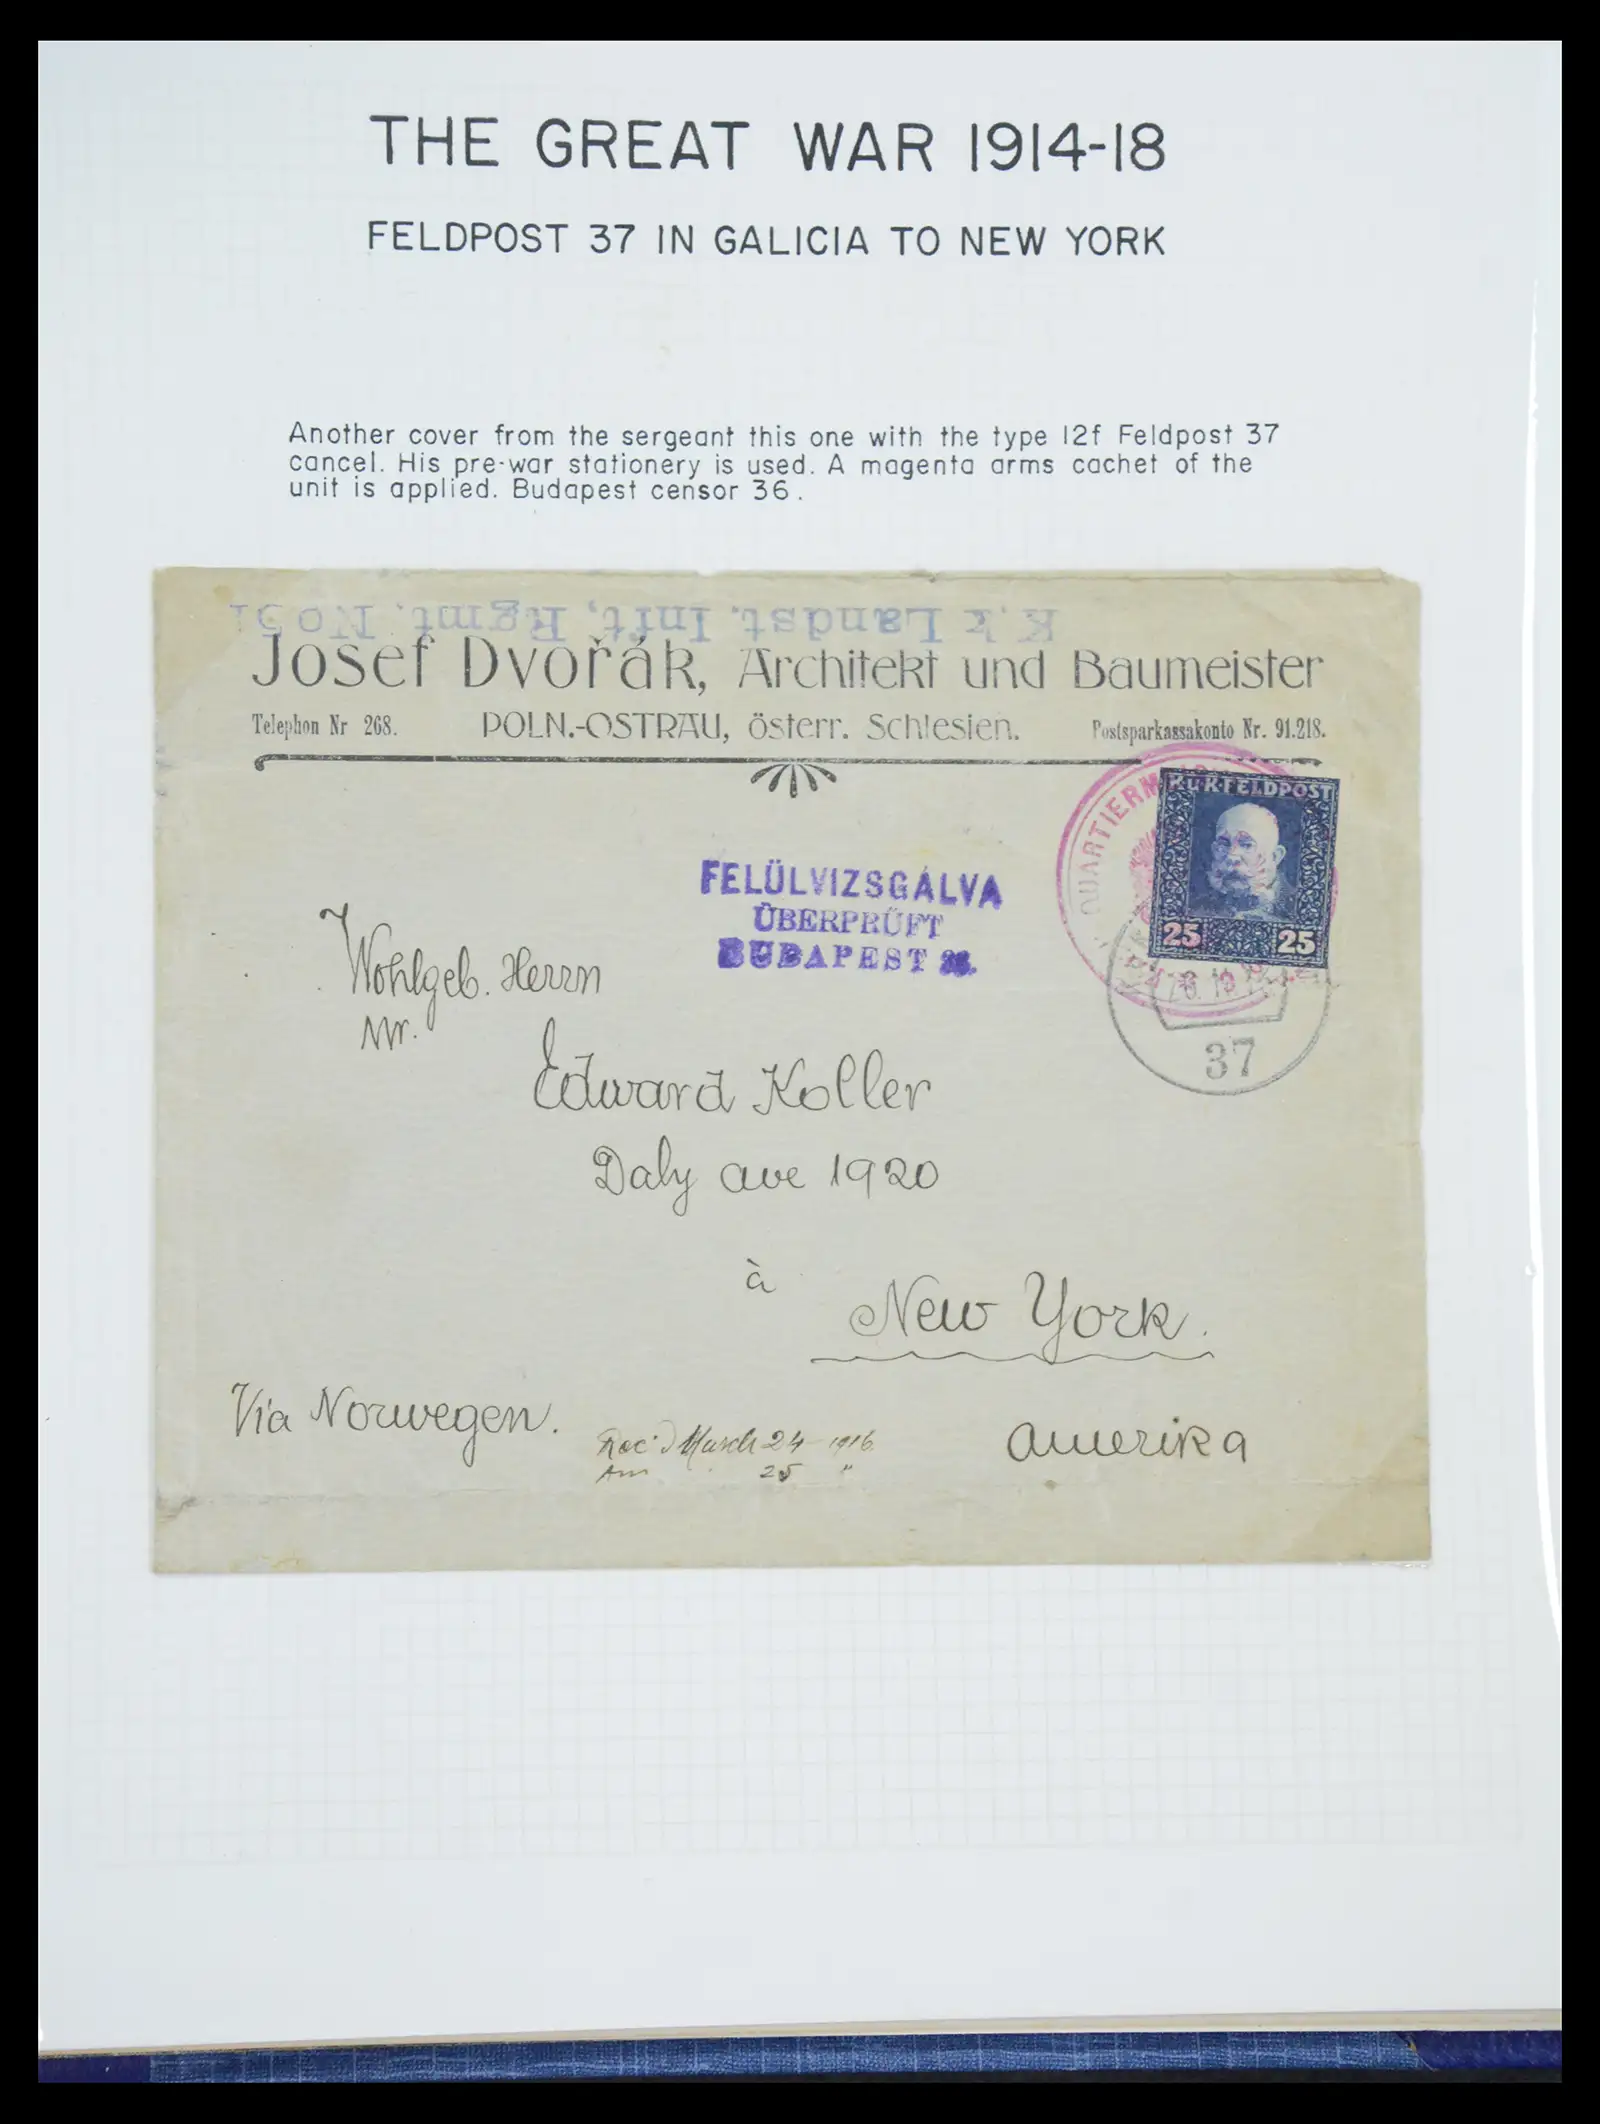 THE GREAT WAR 1914-18
FELDPOST 37 IN GALICIA TO NEW YORK
Another cover from the sergeant this one with the type 12f Feldpost 37
cancel. His pre-war stationery is used. A magenta arms cachet of the
unit is applied. Budapest censor 36.
K. k Landst. Inft. Rgmt. No 31
Josef Dvořák, Architekt und Baumeister
Telephon Nr 268. POLN.-OSTRAU, österr. Schlesien. Postsparkassakonto Nr. 91.218.
K.U.K.FELDPOST
25 25
37
FELÜLVIZSGÁLVA
ÜBERPRÜFT
BUDAPEST 36.
Wohlgeb. Herrn
Mr.
Edward Koller
Daly ave 1920
à
New York.
Via Norwegen.
Rec'd March 24 - 1916
25 "
Amerika